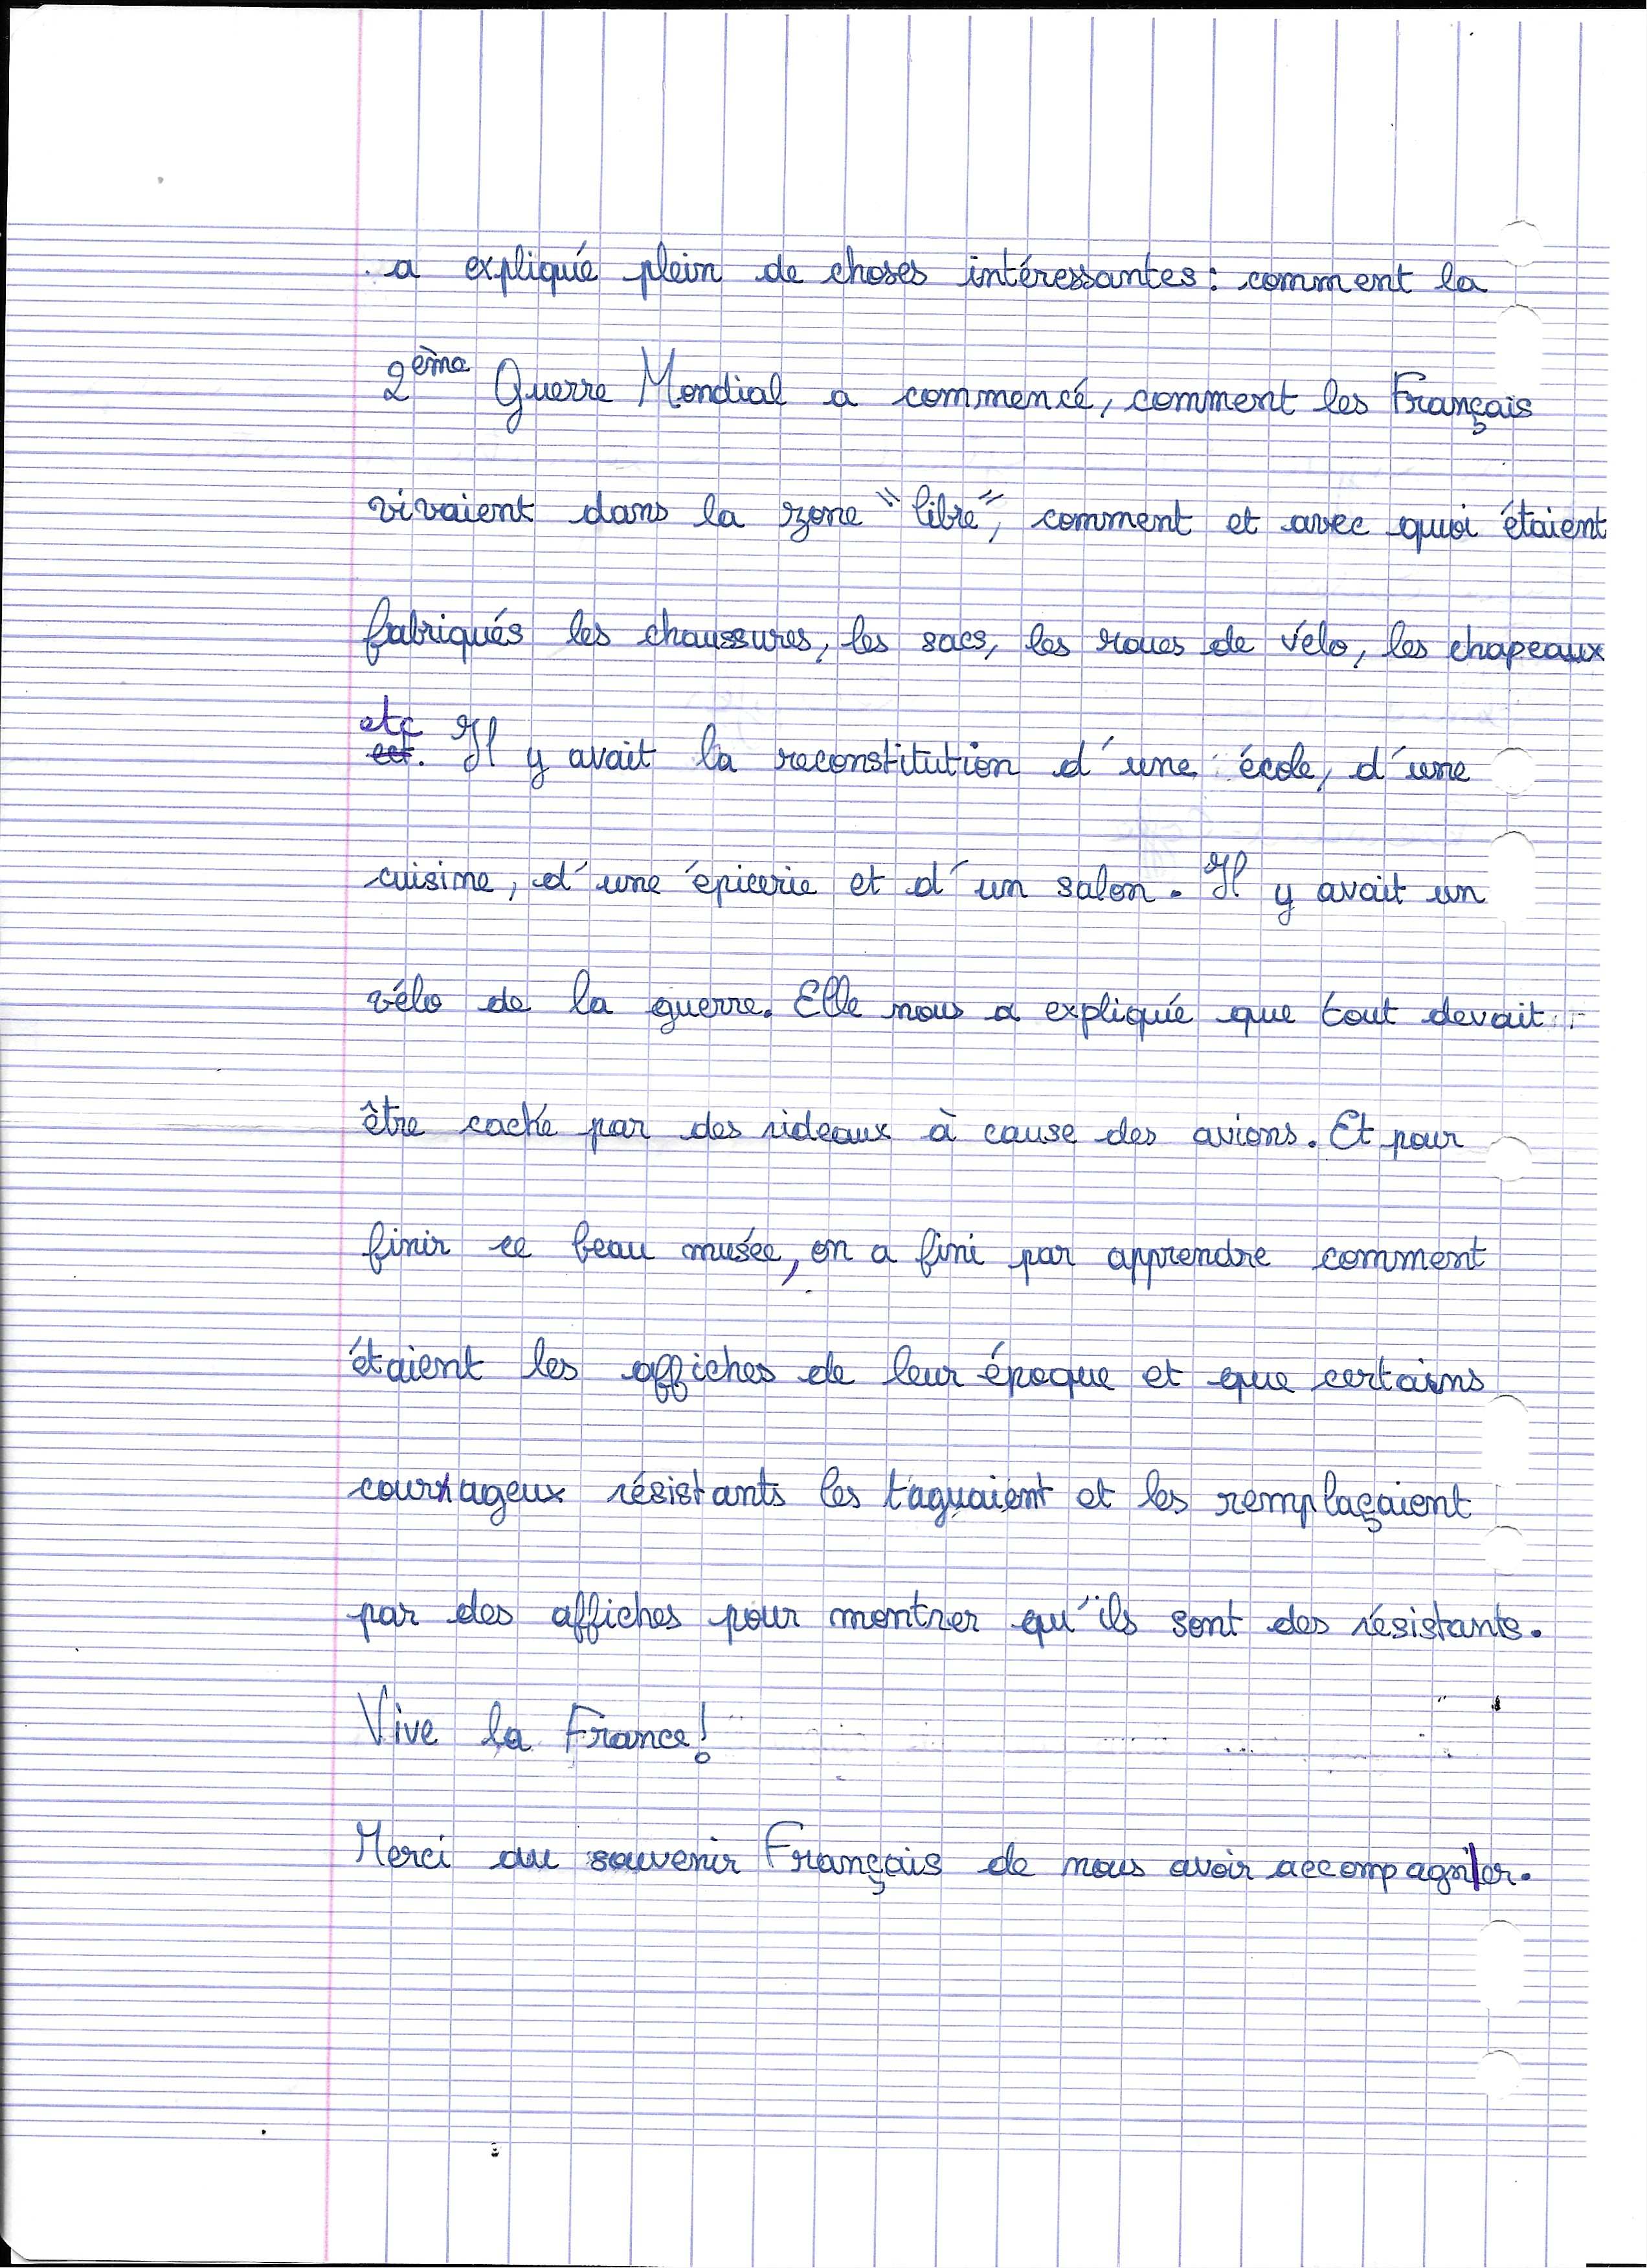 a expliquée plein de choses intéressantes : comment la
2ème Guerre Mondial a commencé, comment les Français
vivaient dans la zone "libre", comment et avec quoi étaient
fabriqués les chaussures, les sacs, les roues de vélo, les chapeaux
etc. Il y avait la reconstitution d'une école, d'une
cuisine, d'une épicerie et d'un salon. Il y avait un
vélo de la guerre. Elle nous a expliquée que tout devait
être caché par des rideaux à cause des avions. Et pour
finir ce beau musée, on a fini par apprendre comment
étaient les affiches de leur époque et que certains
courageux résistants les taguaient et les remplaçaient
par des affiches pour montrer qu'ils sont des résistants.
Vive la France !
Merci au souvenir Français de nous avoir accompagner.